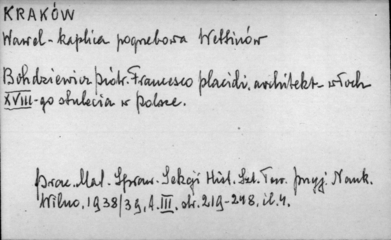 KRAKÓW
Wawel - kaplica pogrzebowa Wettinów
Bohdziewicz Piotr. Francesco Placidi, architekt włoch
XVIII-go stulecia w Polsce.
Prac. Mat. Spraw. Sekcji Hist. Szt. Tow. Przyj. Nauk.
Wilno, 1938/39, t. III. str. 219-248, il. 4.